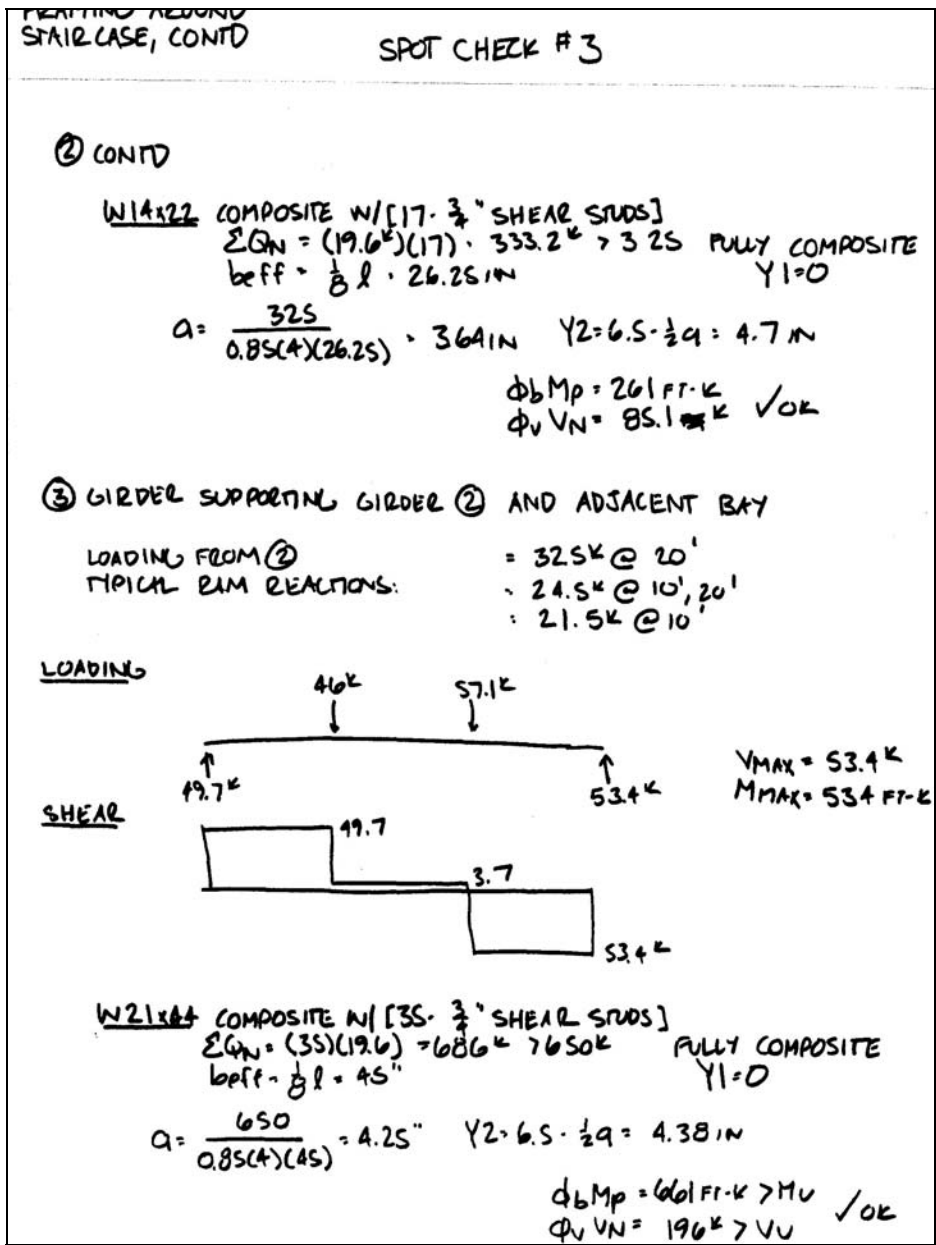 FRAMING AROUND
STAIRCASE, CONTD
SPOT CHECK #3
② CONTD
W14x22 COMPOSITE W/[17- 3/4" SHEAR STUDS]
ΣQN = (19.6ᴷ)(17) = 333.2ᴷ > 325 FULLY COMPOSITE
beff = 1/8 l = 26.25 IN Y1=0
a = 325 / 0.85(4)(26.25) = 3.64 IN Y2=6.5-1/2a = 4.7 IN
ΦbMp = 261 FT-K
ΦvVN = 85.1 K ✓OK
③ GIRDER SUPPORTING GIRDER ② AND ADJACENT BAY
LOADING FROM ② = 32.5ᴷ @ 20'
TYPICAL RAM REACTIONS: = 24.5ᴷ @ 10', 20'
= 21.5ᴷ @ 10'
LOADING
46ᴷ 57.1ᴷ
49.7ᴷ 53.4ᴷ
VMAX = 53.4ᴷ
MMAX = 534 FT-K
SHEAR
49.7
3.7
53.4ᴷ
W21x44 COMPOSITE W/ [35- 3/4" SHEAR STUDS]
ΣQN = (35)(19.6) = 686ᴷ > 650ᴷ FULLY COMPOSITE
beff = 1/8 l = 45" Y1=0
a = 650 / 0.85(4)(45) = 4.25" Y2=6.5-1/2a = 4.38 IN
ΦbMp = 661 FT-K > MU
ΦvVN = 196ᴷ > VU ✓OK